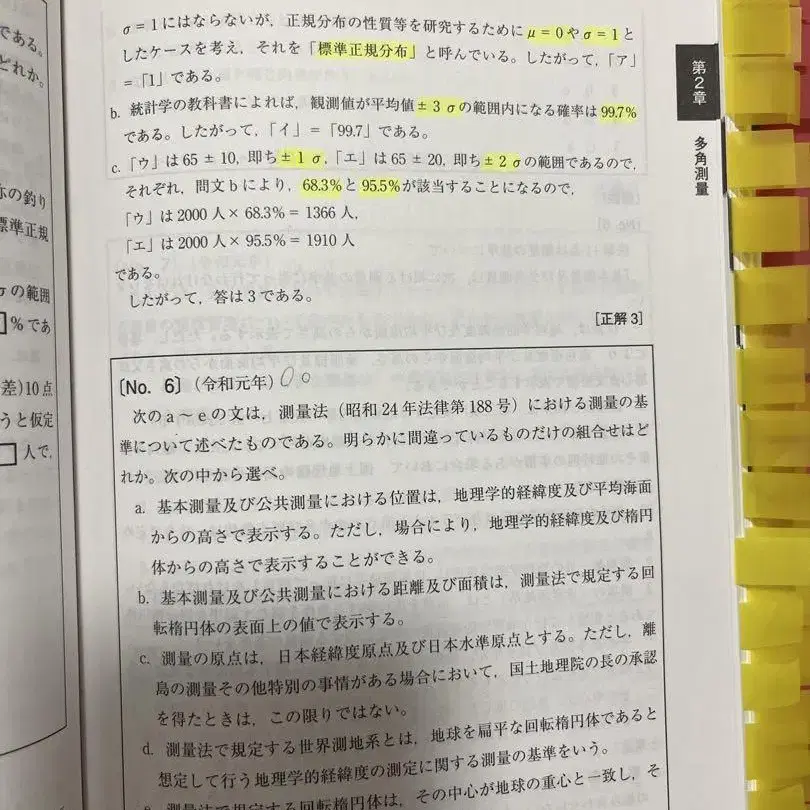 である。
どれか。
弥の釣り
標準正規
σの範囲
%であ
差)10点
うと仮定
人で,
σ=1にはならないが,正規分布の性質等を研究するためにμ=0やσ=1と
したケースを考え,それを「標準正規分布」と呼んでいる。したがって,「ア」
=「1」である。
b. 統計学の教科書によれば,観測値が平均値±3σの範囲内になる確率は99.7%
である。したがって,「イ」=「99.7」である。
c.「ウ」は65±10,即ち±1σ,「エ」は65±20,即ち±2σの範囲であるので,
それぞれ,問文bにより,68.3%と95.5%が該当することになるので,
「ウ」は2000人×68.3%=1366人,
「エ」は2000人×95.5%=1910人
である。
したがって,答は3である。
[正解3]
〔No. 6〕(令和元年)
次のa~eの文は,測量法(昭和24年法律第188号)における測量の基
準について述べたものである。明らかに間違っているものだけの組合せはど
れか。次の中から選べ。
a. 基本測量及び公共測量における位置は,地理学的経緯度及び平均海面
からの高さで表示する。ただし,場合により,地理学的経緯度及び楕円
体からの高さで表示することができる。
b. 基本測量及び公共測量における距離及び面積は,測量法で規定する回
転楕円体の表面上の値で表示する。
c. 測量の原点は,日本経緯度原点及び日本水準原点とする。ただし,離
島の測量その他特別の事情がある場合において,国土地理院の長の承認
を得たときは,この限りではない。
d. 測量法で規定する世界測地系とは,地球を扁平な回転楕円体であると
想定して行う地理学的経緯度の測定に関する測量の基準をいう。
e. 測量法で規定する回転楕円体は,その中心が地球の重心と一致し,そ
第2章
多角測量